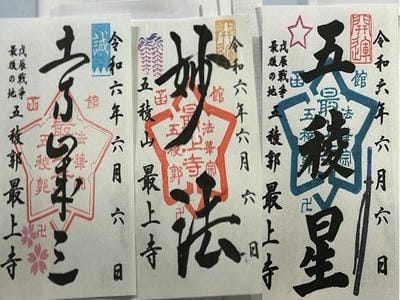 誠
令和六年六月六日
土方歳三
函館
法華宗
最上寺
五稜郭
卍
戊辰戦争
最後の地
五稜郭 最上寺
令和六年六月六日
妙法
函館
法華宗
最上寺
五稜郭
卍
五稜山 最上寺
開運
令和六年六月六日
五稜星
函館
法華宗
最上寺
五稜郭
卍
戊辰戦争
最後の地
五稜郭 最上寺